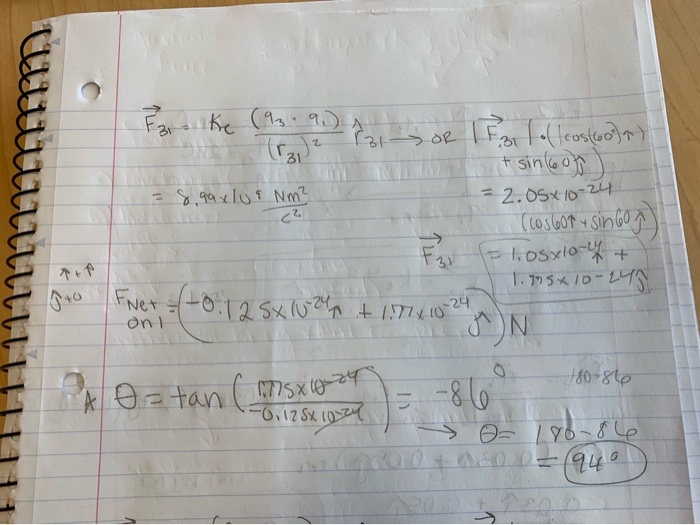 F⃗31 = Kc (q3 · q1) / (r31)² r̂31 → OR |F⃗31| · (1cos(60°)î
+ sin(60)ĵ)
= 8.99x10⁹ Nm²/c²
= 2.05x10-24
(cos60î + sin60ĵ)
F⃗31 = 1.05x10-24î +
1.775x10-24ĵ
î + î
ĵ + 0
FNet on 1 = (-0.125x10-24î + 1.77x10-24ĵ)N
A θ = tan(1.775x10-24 / -0.125x10-24) = -86°
180-86
→ θ = 180-86
= 94°